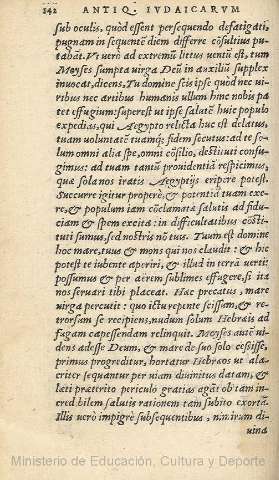 242 ANTIQ. IVDAICARVM
sub oculis, quòd essent persequendo defatigati,
pugnam in sequentē diem differre cōsultius pu-
tabāt. Vt verò ad extremū littus ventū est, tum
Moyses sumpta virga Deū in auxiliū supplex
inuocat, dicens, Tu domine scis ipse quòd nec vi-
ribus nec artibus humanis ullum hinc nobis pa-
tet effugium: superest ut ipse salutē huic populo
expedias, qui Aegypto relicta huc est delatus,
tuam voluntatē tuamq́; fidem secutus: ad te so-
lum omni alia spe, omni cōsilio, destituti confu-
gimus: ad tuam tantū prouidentiā respicimus,
quæ sola nos iratis Aegyptijs eripere potest.
Succurre igitur properè, & potentiā tuam exe-
re, & populum iam cōclamata salutis ad fidu-
ciam & spem excita: in difficultatibus cōsti-
tuti sumus, sed nostris nō tuis. Tuum est domine
hoc mare, tuus & mons qui nos claudit: & hic
potest te iubente aperiri, & illud in terrā verti:
possumus & per aërem sublimes effugere, si ita
nos seruari tibi placeat. Hæc precatus, mare
virga percutit: quo ictu repente scissum, & re-
trorsum se recipiens, nudum solum Hebræis ad
fugam capessendam relinquit. Moyses autē vi-
dens adesse Deum, & mare de suo solo cessisse,
primus progreditur, hortatur Hebræos ut ala-
criter sequantur per viam diuinitus datam, &
læti præterito periculo gratias agāt ob tam in-
cred bilem salutis rationem tam subito exortā.
Illis verò impigrè subsequentibus, nimirum di-
uina
Ministerio de Educación, Cultura y Deporte